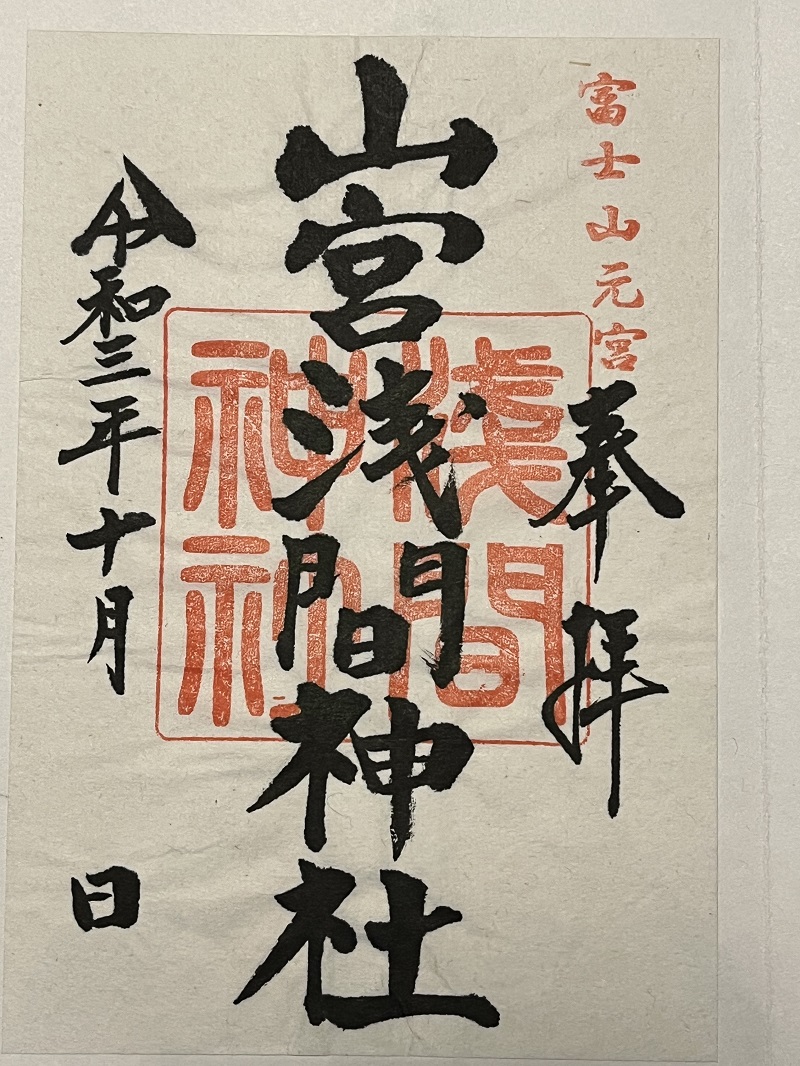 富士山元宮
奉拝
山宮浅間神社
淺間神社
令和三年十月 日